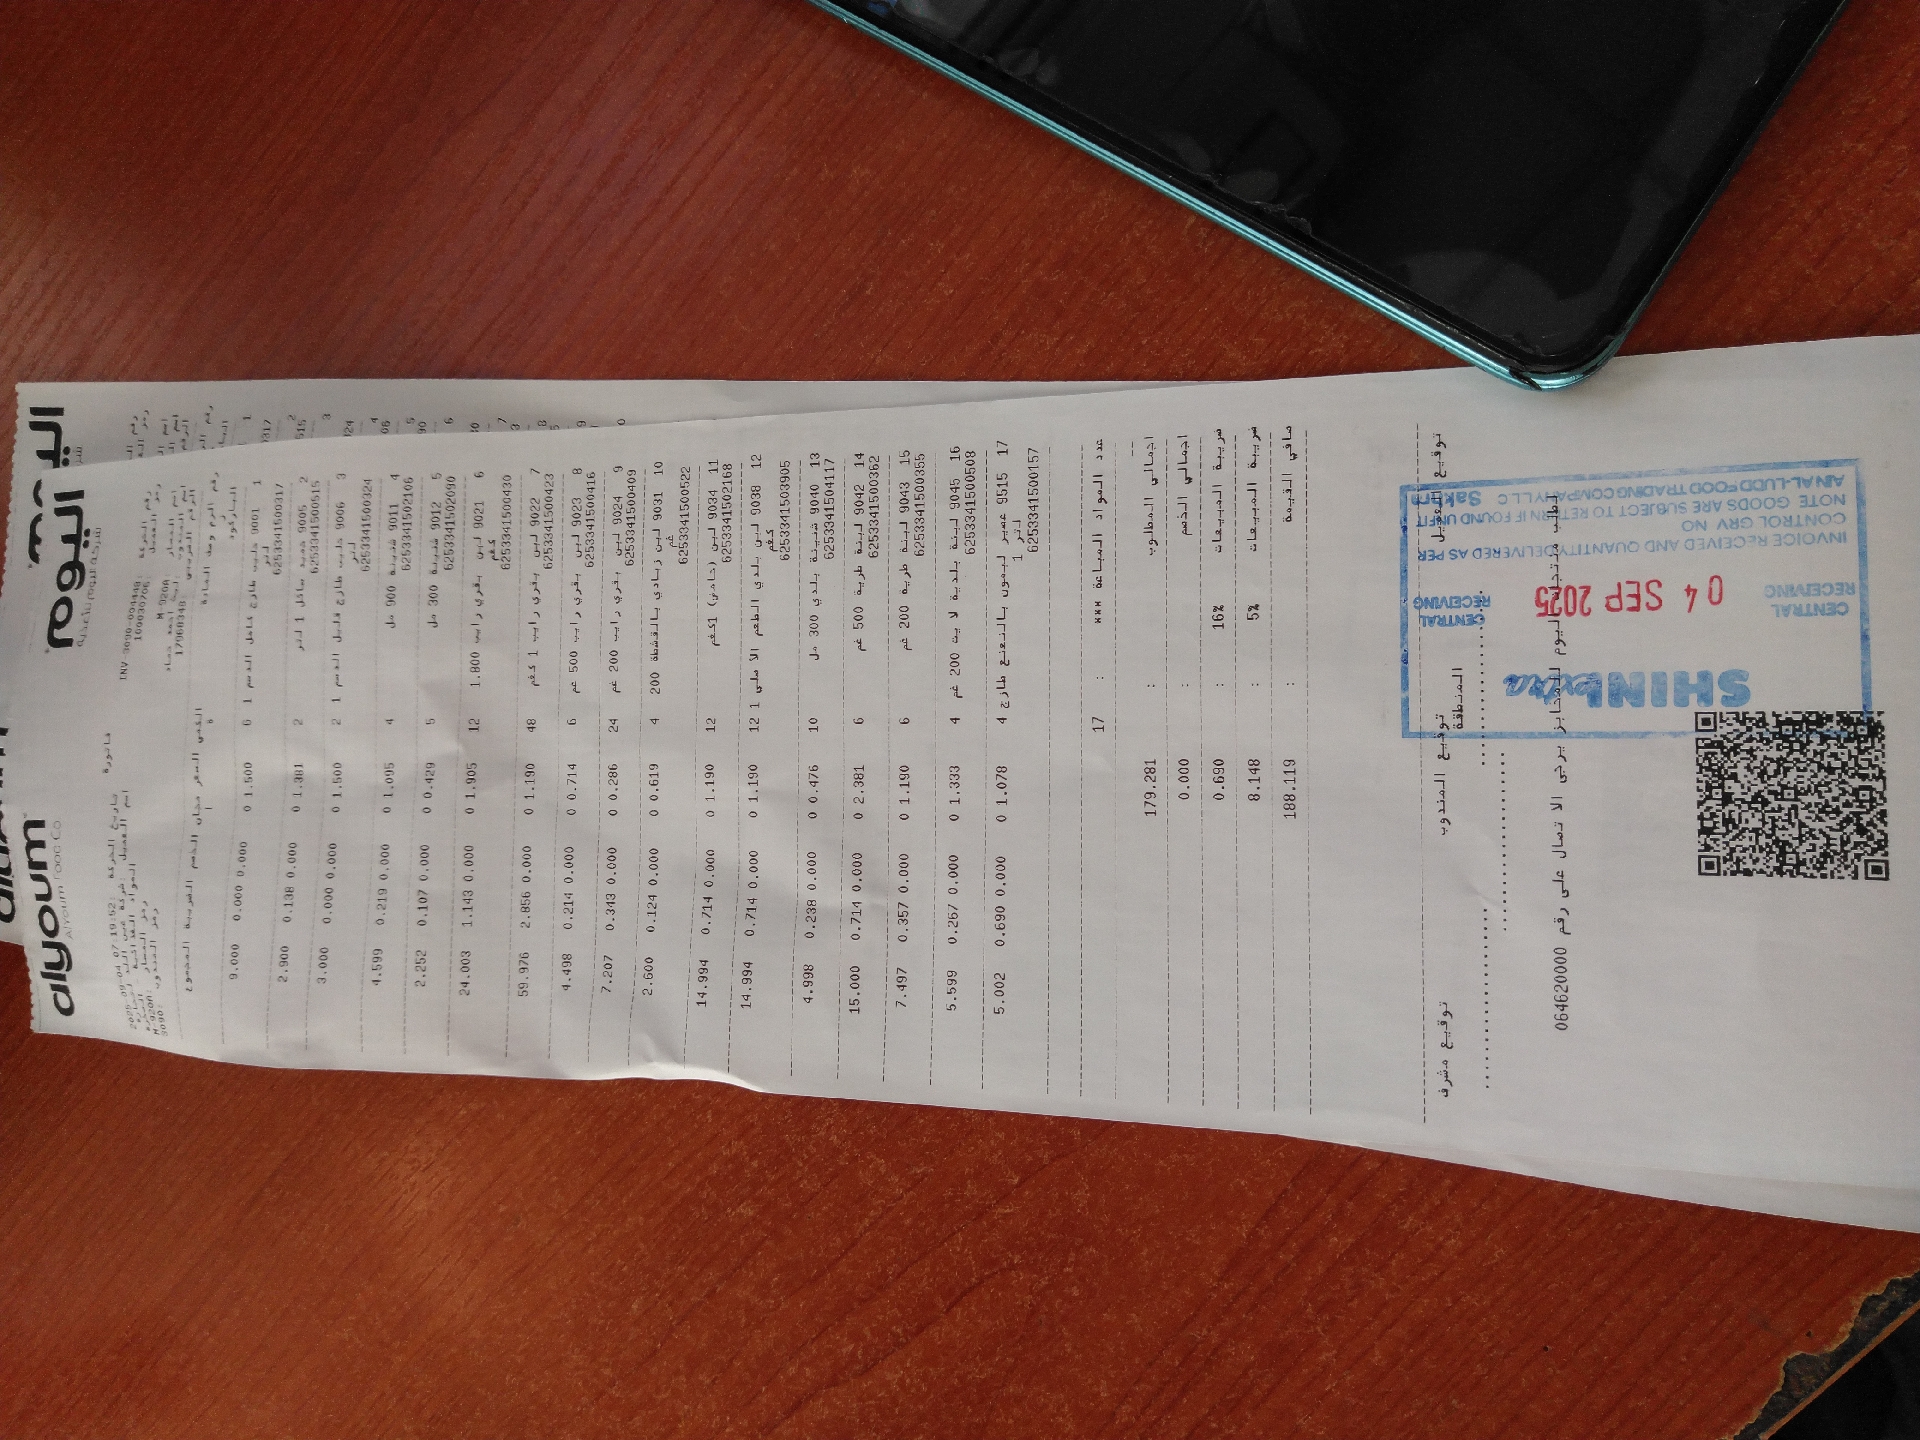 اليوم
شركة اليوم للأغذية
alyoum
Alyoum Food Co
فاتورة
INV
2025-09-04 07:19:52
M-9200
3090
رقم الرمز وصف المادة
الباركود
السعر مجان الخصم الضريبة المجموع
1 9001 حليب طازج كامل الدسم 1 6 1.500 0 0.000 0.000 9.000
لتر
6253341500317
2 9005 سائل 1 لتر 2 1.381 0 0.000 0.138 2.900
6253341500515
3 9006 حليب طازج قليل الدسم 1 2 1.500 0 0.000 0.000 3.000
لتر
6253341500324
4 9011 شنينة 900 مل 4 1.095 0 0.000 0.219 4.599
6253341502106
5 9012 شنينة 300 مل 5 0.429 0 0.000 0.107 2.252
6253341502090
6 9021 لبن بقري رايب 1.800 12 1.905 0 0.000 1.143 24.003
كغم
6253341500430
7 9022 لبن بقري رايب 1 كغم 48 1.190 0 0.000 2.856 59.976
6253341500423
8 9023 لبن بقري رايب 500 غم 6 0.714 0 0.000 0.214 4.498
6253341500416
9 9024 لبن بقري رايب 200 غم 24 0.286 0 0.000 0.343 7.207
6253341500409
10 9031 لبن زبادي بالقشطة 200 4 0.619 0 0.000 0.124 2.600
غم
6253341500522
11 9034 لبن (خاص) 1كغم 12 1.190 0 0.000 0.714 14.994
6253341502168
12 9038 لبن بلدي الطعم الاصلي 1 12 1.190 0 0.000 0.714 14.994
كغم
6253341503905
13 9040 شنينة بلدي 300 مل 10 0.476 0 0.000 0.238 4.998
6253341504117
14 9042 لبنة طرية 500 غم 6 2.381 0 0.000 0.714 15.000
6253341500362
15 9043 لبنة طرية 200 غم 6 1.190 0 0.000 0.357 7.497
6253341500355
16 9045 لبنة بلدية لايت 200 غم 4 1.333 0 0.000 0.267 5.599
6253341500508
17 9515 عصير ليمون بالنعنع طازج 4 1.078 0 0.000 0.690 5.002
1 لتر
6253341500157
عدد المواد المباعة *** : 17
اجمالي المطلوب : 179.281
اجمالي الخصم : 0.000
ضريبة المبيعات 16% : 0.690
ضريبة المبيعات 5% : 8.148
صافي القيمة : 188.119
توقيع العميل توقيع المندوب توقيع مشرف
المنطقة
لطلب منتجات اليوم للمخابز يرجى الاتصال على رقم 064620000
SHINI extra
CENTRAL
RECEIVING
04 SEP 2025
CENTRAL
RECEIVING
INVOICE RECEIVED AND QUANTITY DELIVERED AS PER
CONTROL GRV NO
NOTE GOODS ARE SUBJECT TO RETURN IF FOUND UNFIT
AIN AL-LUDD FOOD TRADING COMPANY L.L.C Sakhra